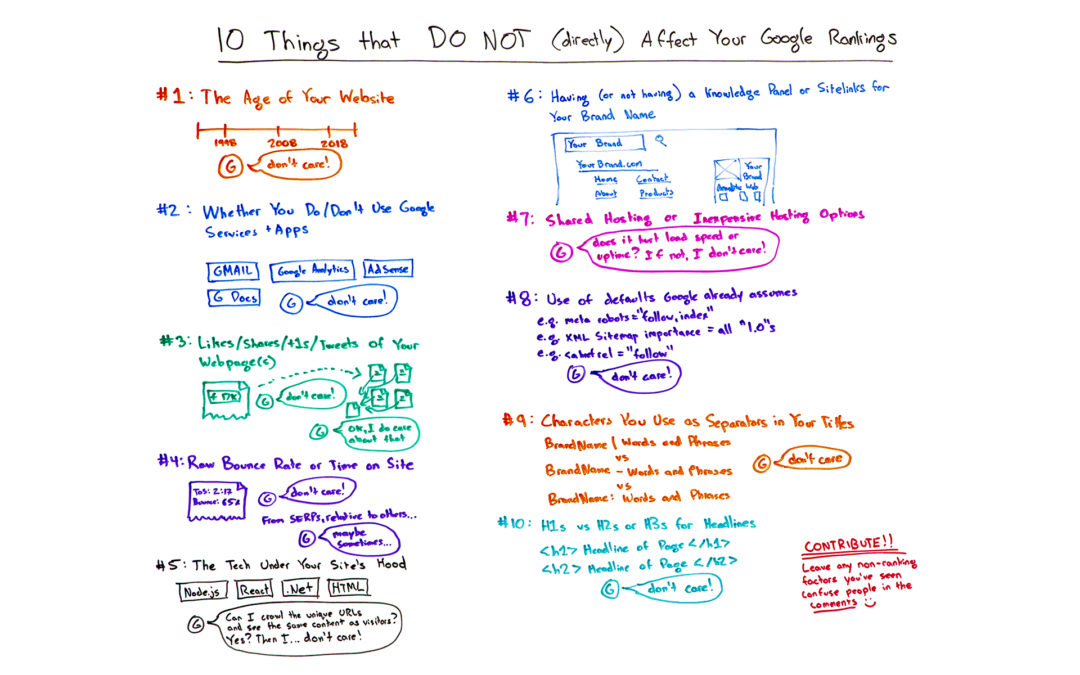 10 Things that DO NOT (directly) Affect Your Google Rankings
#1: The Age of Your Website
1998 2008 2018
G don't care!
#2: Whether You Do/Don't Use Google
Services + Apps
GMAIL Google Analytics AdSense
G Docs G don't care!
#3: Likes/Shares/+1s/Tweets of Your
Webpage(s)
f 17K G don't care!
G OK, I do care
about that
#4: Raw Bounce Rate or Time on Site
ToS: 2:17
Bounce: 65%
G don't care!
From SERPs, relative to others...
G maybe
sometimes...
#5: The Tech Under Your Site's Hood
Node.js React .Net HTML
G Can I crawl the unique URLs
and see the same content as visitors?
Yes? Then I... don't care!
#6: Having (or not having) a Knowledge Panel or Sitelinks for
Your Brand Name
Your Brand
YourBrand.com
Home Contact
About Products
Your
Brand
Web
#7: Shared Hosting or Inexpensive Hosting Options
G does it hurt load speed or
uptime? If not, I don't care!
#8: Use of defaults Google already assumes
e.g. meta robots="follow, index"
e.g. XML Sitemap importance = all "1.0"s
e.g. <ahref rel = "follow"
G don't care!
#9: Characters You Use as Separators in Your Titles
BrandName | Words and Phrases
vs
BrandName - Words and Phrases
vs
BrandName: Words and Phrases
G don't care
#10: H1s vs H2s or H3s for Headlines
<h1> Headline of Page </h1>
<h2> Headline of Page </h2>
G don't care!
CONTRIBUTE!!
Leave any non-ranking
factors you've seen
confuse people in the
comments